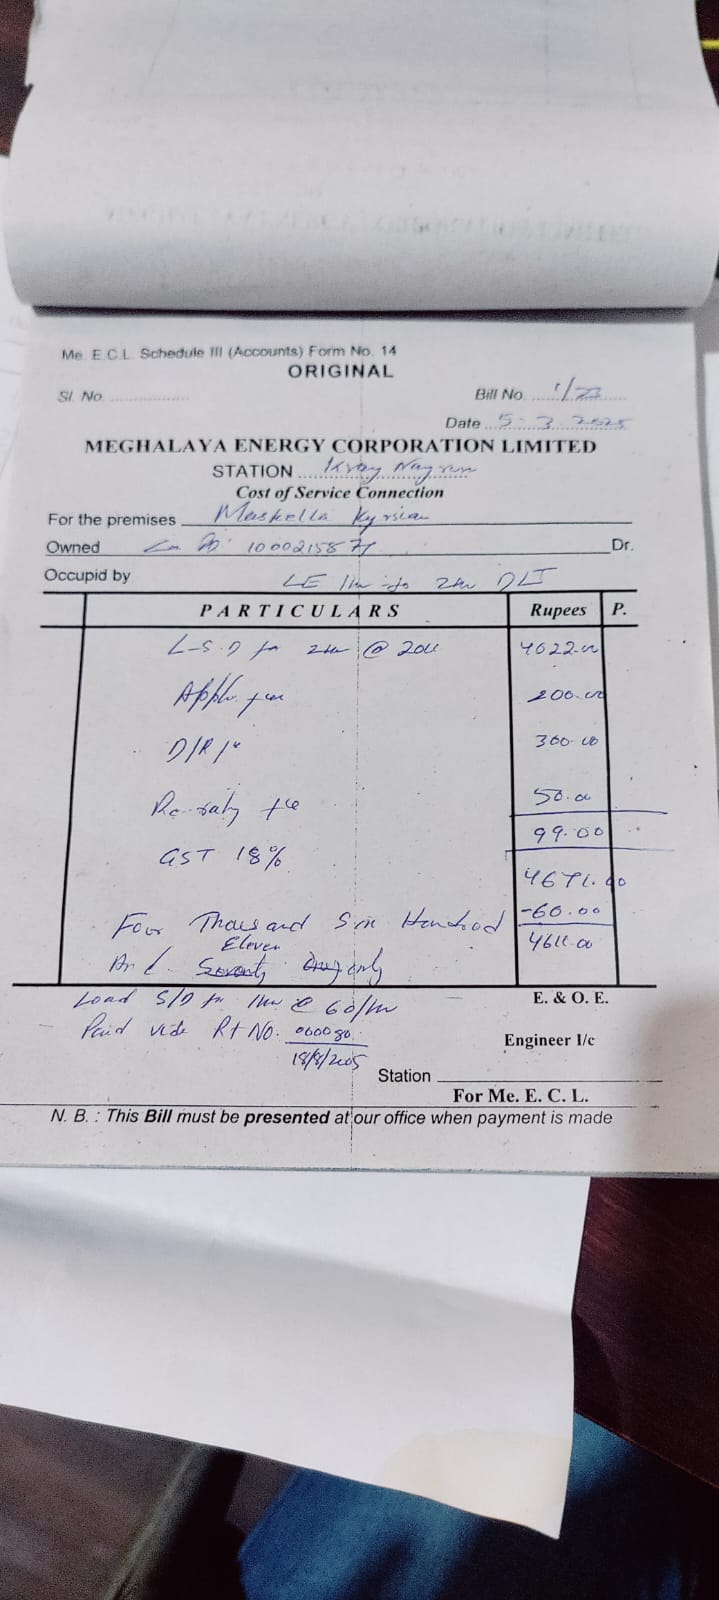 Me. E.C.L. Schedule III (Accounts) Form No. 14
ORIGINAL
Sl. No. ....................
Bill No. 1/23
Date 5-3-2025
MEGHALAYA ENERGY CORPORATION LIMITED
STATION
Cost of Service Connection
For the premises Maskella
Owned Dr.
Occupid by LE 1kw to 2kw DLT
PARTICULARS Rupees P.
L-S.D for 2kw @ 2011 4022.00
Appln fee 200.00
D/R/c 300.00
50.00
GST 18% 99.00
4671.00
-60.00
Four Thousand Six Hundred 4611.00
Eleven
And Seventy only
Load S/D for 1kw @ 60/kw
Paid vide Rt No. 000080
18/8/2005
E. & O. E.
Engineer I/c
Station
For Me. E. C. L.
N. B. : This Bill must be presented at our office when payment is made